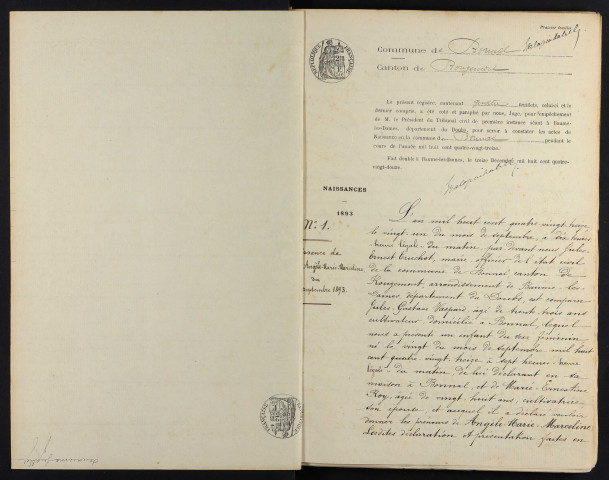 Premier feuillet
Commune de Bonnal
Canton de Rougemont
Le présent registre, contenant quatre feuillets, celui-ci et le
dernier compris, a été coté et paraphé par nous, Juge, pour l'empêchement
de M. le Président du Tribunal civil de première instance séant à Baume-
les-Dames, département du Doubs, pour servir à constater les actes de
Naissances en la commune de Bonnal pendant le
cours de l'année mil huit cent quatre-vingt-treize.
Fait double à Baume-les-Dames, le treize Décembre mil huit cent quatre-
vingt-douze.
NAISSANCES
1893
N° 1.
Naissance de
Angèle-Marie-Marceline
du
septembre 1893.
L'an mil huit cent quatre vingt treize,
le vingt un du mois de septembre, à dix heures
heure légale du matin, par devant nous Jules
Ernest Cruchot, maire, officier de l'état civil
de la commune de Bonnal, canton de
Rougemont, arrondissement de Baume-les-
Dames département du Doubs, est comparu
Jules Gustave Gaspard, agé de trente trois ans
cultivateur, domicilié à Bonnal, lequel
nous a présenté un enfant du sexe féminin
né le vingt du mois de septembre mil huit
cent quatre-vingt-treize à sept heures heure
légale du matin, de lui déclarant en sa
maison à Bonnal, et de Marie Ernestine
Roy, agée de vingt huit ans, cultivatrice
son épouse, et auquel il a déclaré vouloir
donner les prénoms de Angèle-Marie-Marceline
Lesdites déclaration et présentation faites en